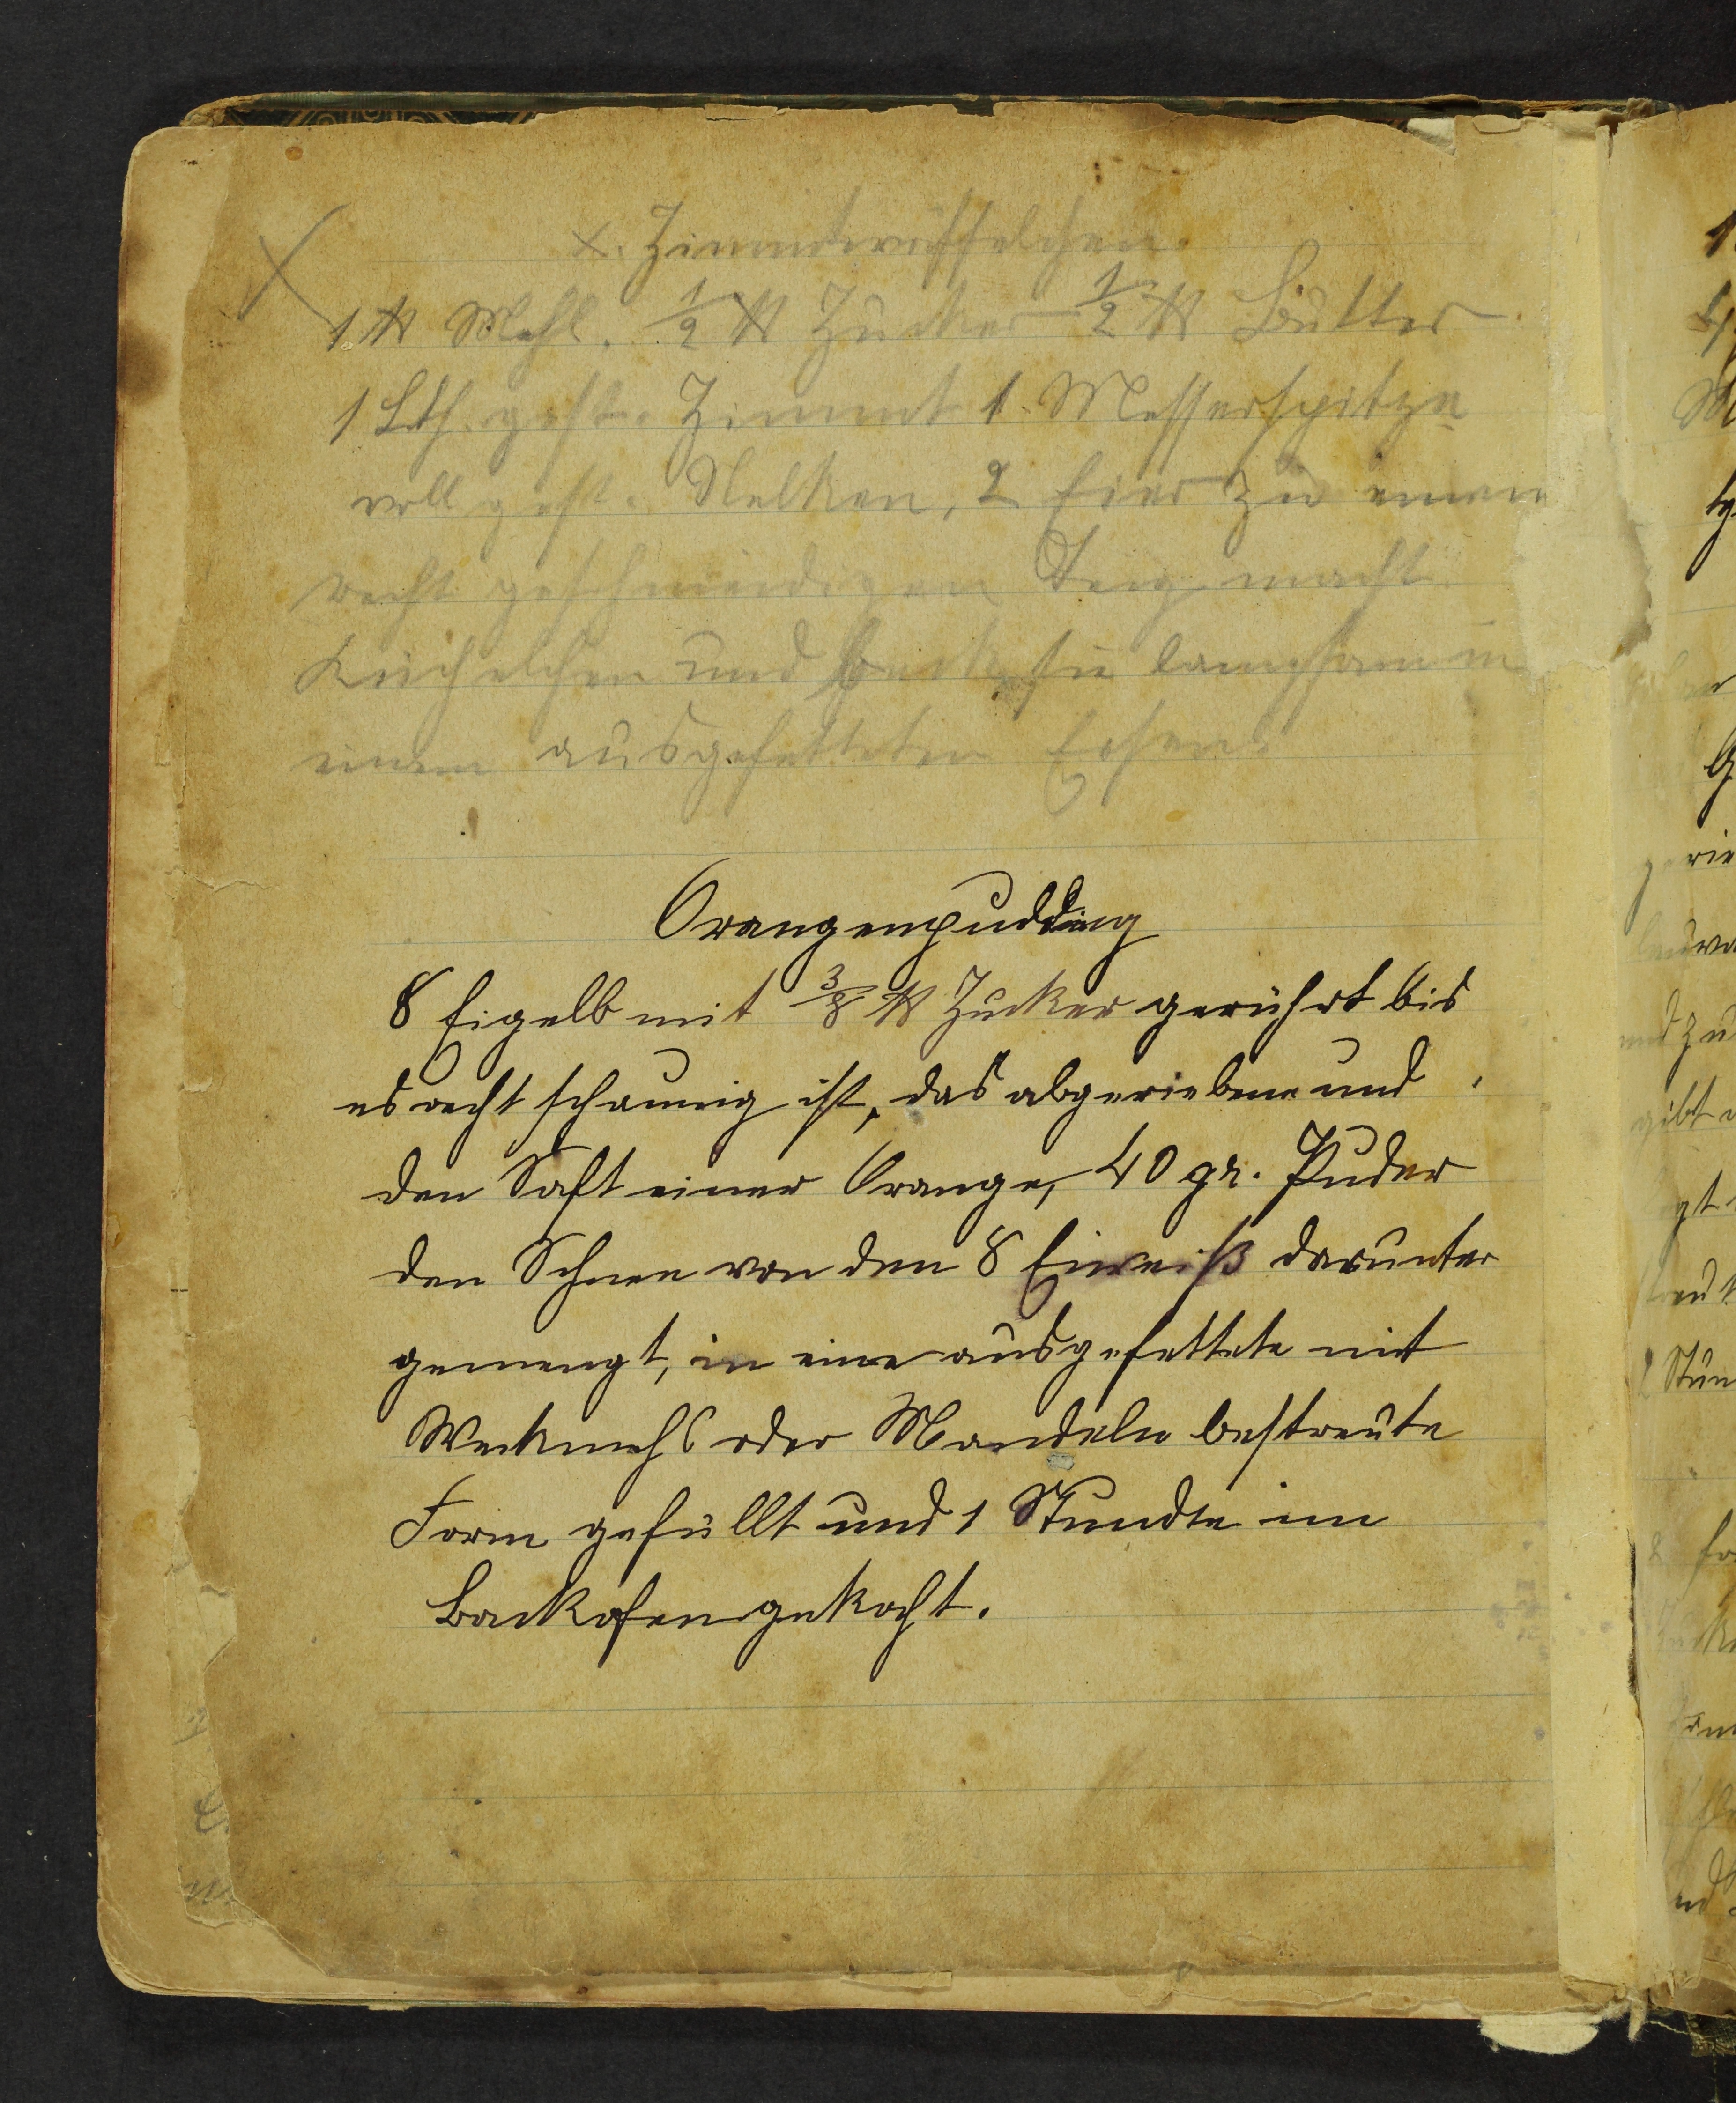 x. Zimmtwaffelchen.
1 ℔ Mehl. 1/2 ℔ Zucker 1/2 ℔ Butter
1 Lth. gest. Zimmt 1 Messerspitze
voll gest. Nelken, 2 Eier zu einem
recht geschmeidigen Teig macht
Küchelchen und backe sie langsam in
einem ausgefetteten Eisen.
Orangenpudding
8 Eigelb mit 3/8 ℔ Zucker gerührt bis
es recht schaumig ist, das abgeriebene und
den Saft einer Orange, 40 gr. Puder
den Schnee von den 8 Eiweiß darunter
gemengt, in eine ausgefettete mit
Weckmehl oder Mandeln bestreute
Form gefüllt und 1 Stundte im
Backofen gekocht.